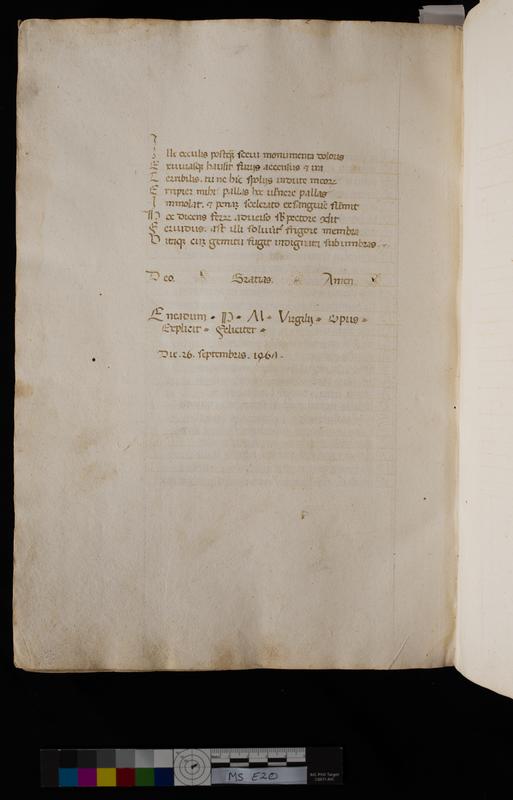 I
lle oculis postq̃ sevi monumenta doloris
E xuviasq; hausit furiis accensus & ira
T erribilis. tu ne hic spoliis indute meorꝝ
E ripier mihi pallas hoc vulnere pallas
I mmolat. & penaz scelerato ex sanguine
H oc dicens ferrꝝ adverso sb pectore
F ervidus. ast illi frigore membra
V itaq; cuz gemitu fugit indignata sub umbras.
Deo. Gratias. Amen
Eneadum P. M. Virgilij Opus
Explicit Feliciter
Die. 26. septembris.
MS E20